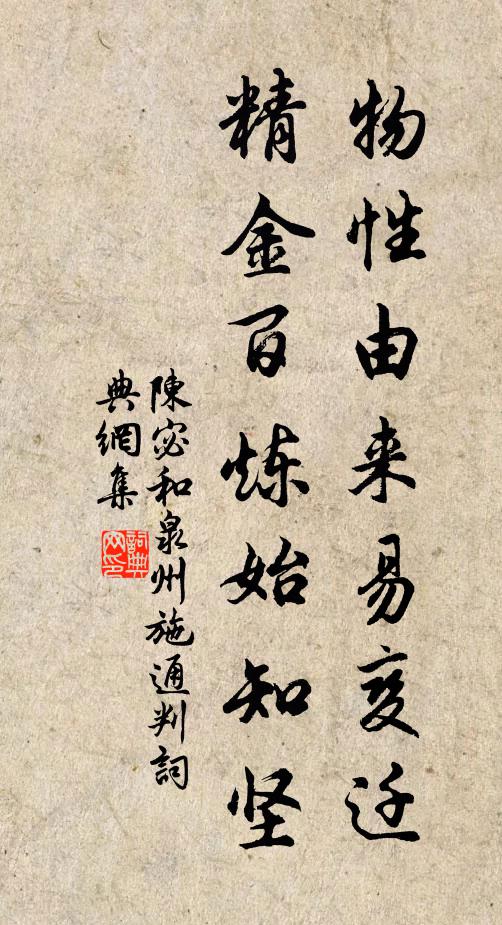 物性由来易变迁
精金百炼始知坚
陳宓和泉州施通判詞
典網集
詞典網印